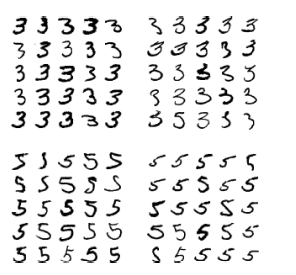 3 3 3 3 3 3 3 3 3 3
3 3 3 3 3 3 3 3 3 3
3 3 3 3 3 3 3 3 3 3
3 3 3 3 3 3 3 3 3 3
3 3 3 3 3 3 5 3 3 3
5 5 5 5 5 5 5 5 5 5
5 5 5 5 5 5 5 5 5 5
5 5 5 5 5 5 5 5 5 5
5 5 5 5 5 5 5 6 5 5
5 5 5 5 5 5 5 5 5 5